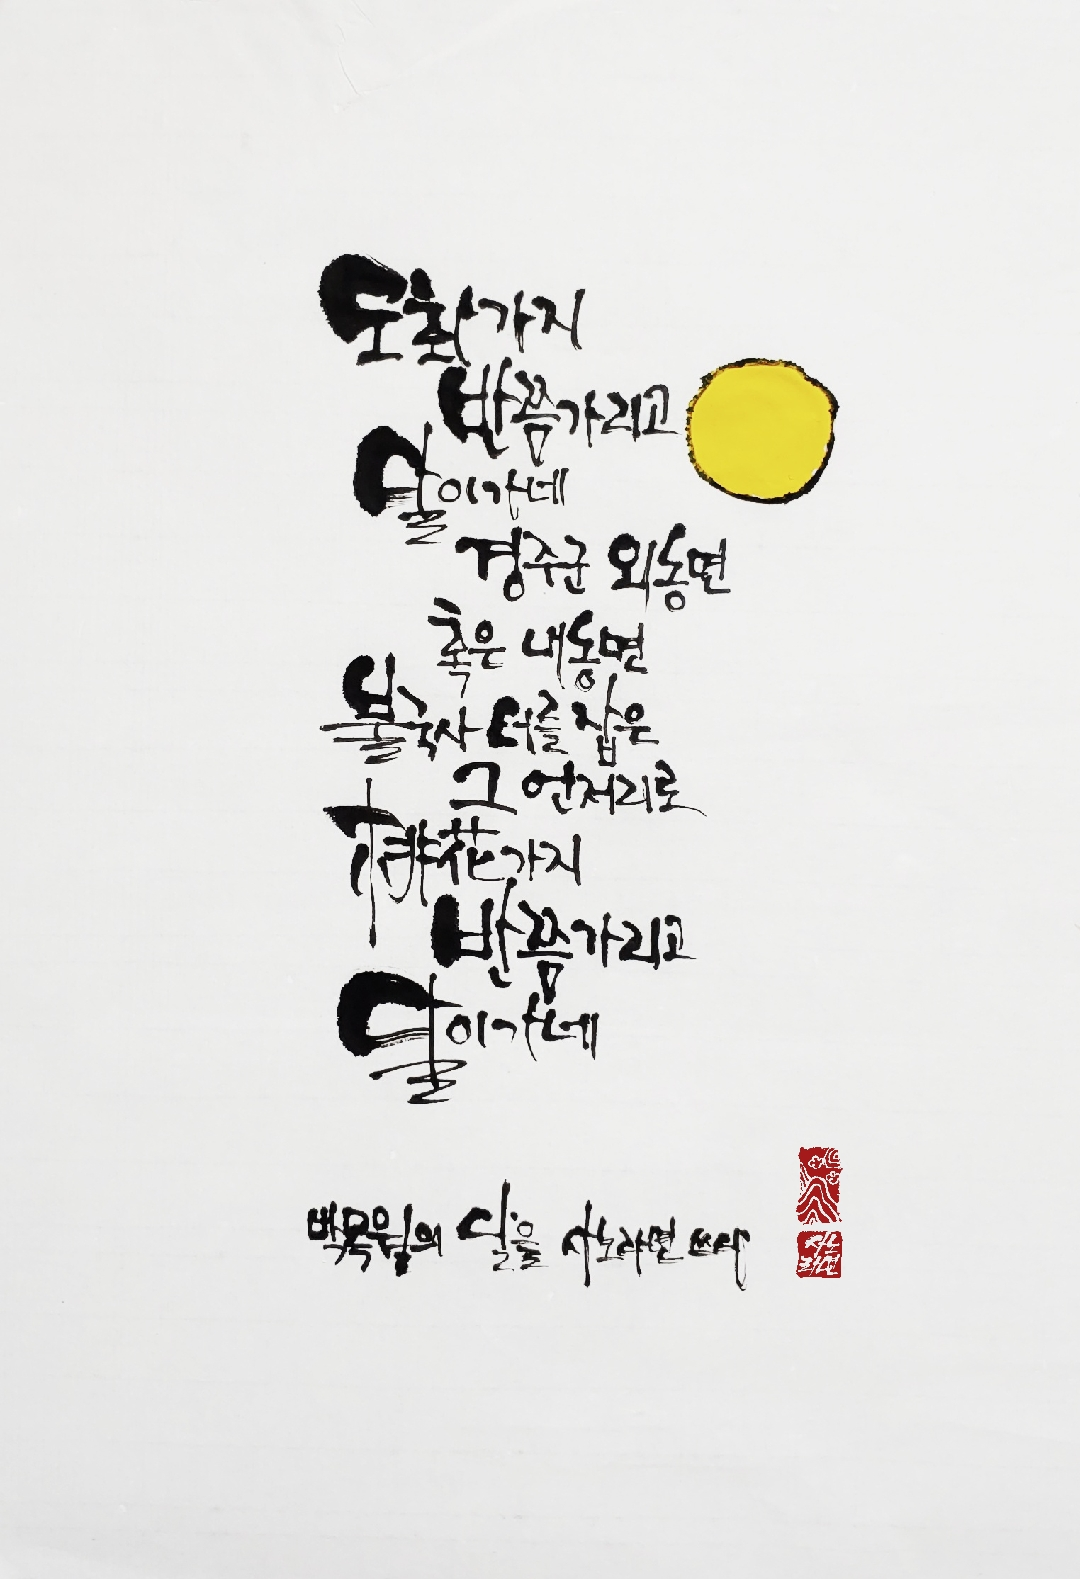 도화가지
반쯤가리고
달이가네
경주군 외동면
혹은 내동면
불국사 터를 잡은
그 언저리로
桃花가지
반쯤가리고
달이가네
박목월의 달을 사노라면 쓰다
사노
라면